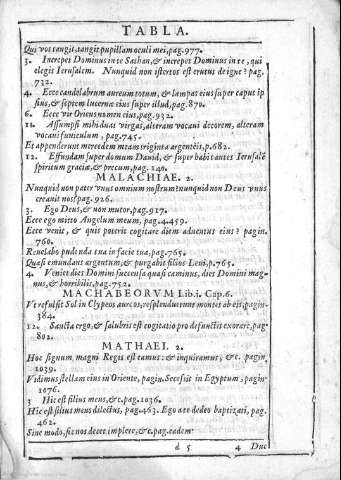 TABLA.
Qui vos tangit, tangit pupillam oculi mei, pag.977.
3. Increpet Dominus in te Sathan, & increpet Dominus in te, qui
elegit Ierusalem. Nunquid non iste tor est erutus de igne? pag.
732.
4. Ecce candelabrum aureum totum, & lampas eius super caput ip
sius, & septem lucernæ eius super illud, pag.870.
6. Ecce vir Oriens nomen eius, pag.932.
11. Assumpsi mihi duas virgas, alteram vocaui decorem, alteram
vocaui funiculum, pag.745.
Et appenderunt mercedem meam triginta argenteis, p.682.
12. Effundam super domum Dauid, & super habitantes Ierusalē
spiritum gratiæ, & precum, pag.140.
MALACHIAE. 2.
Nunquid non pater vnus omnium nostrum? nunquid non Deus vnus
creauit nos? pag.926.
3. Ego Deus, & non mutor, pag.917.
Ecce ego mitto Angelum meum, pag.4.459.
Ecce venit, & quis poterit cogitare diem aduentus eius? pagin.
760.
Reuelabo pudenda tua in facie tua, pag.765.
Quasi emundans argentum, & purgabit filios Leui, p.765.
4. Veniet dies Domini succensa quasi caminus, dies Domini mag-
nus, & horribilis, pag.752.
MACHABEORVM Lib.i. Cap.6.
Vt refulsit Sol in Clypeos aureos, resplenduerunt montes ab eis, pagin.
384.
12. Sancta ergo, & salubris est cogitatio pro defunctis exorare, pag.
802.
MATHAEI. 2.
Hoc signum, magni Regis est eamus: & inquiramus, &c. pagin.
1039.
Vidimus stellam eius in Oriente, pagin. Secessit in Egyptum, pagin.
1076.
3 Hic est filius meus, &c. pag.1036.
Hic est filius meus dilectus, pag.463. Ego a te debeo baptizari, pag.
462.
Sine modo, sic nos decet implere, &c. pag. eadem.
d 5
4 Duc